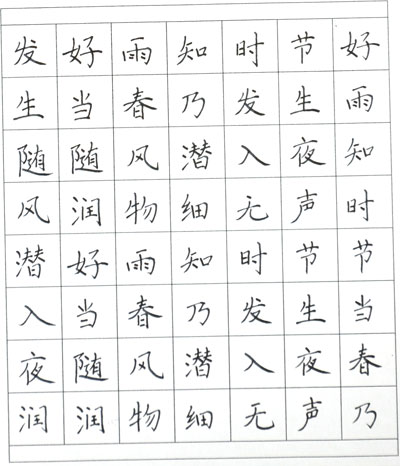 发好雨知时节好
生当春乃发生雨
随随风潜入夜知
风润物细无声时
潜好雨知时节节
入当春乃发生当
夜随风潜入夜春
润润物细无声乃